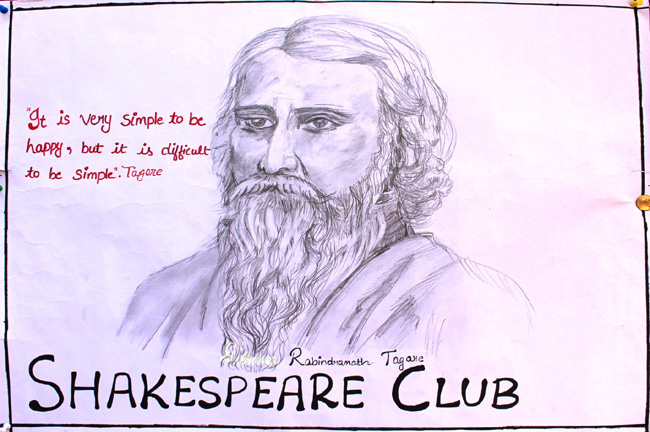 "It is very simple to be
happy, but it is difficult
to be simple". Tagore
Rabindranath Tagore
SHAKESPEARE CLUB